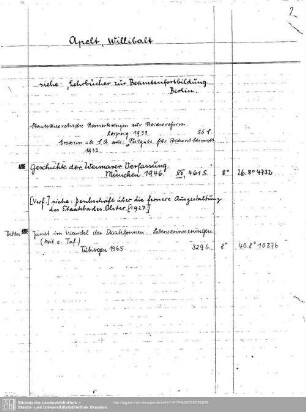 2
Apelt, Willibalt
siehe: Lehrbücher zur Beamtenfortbildung.
Berlin.
Staatsrechtliche Bemerkungen zur Reichsreform
Leipzig 1932. 36 S.
1932.
Geschichte der Weimarer Verfassung.
München 1946. XV, 461 S. 8° 26.8° 4732
[Verf.] siehe: Denkschrift über die fernere Ausgestaltung
des Staatsbades Elster [1927]
Jurist im Wandel der Staatsformen. Lebenserinnerungen
(Mit e. Taf.)
Tübingen 1965. 329 S. 8° 40.8° 10276
Sächsische Landesbibliothek -
Staats- und Universitätsbibliothek Dresden